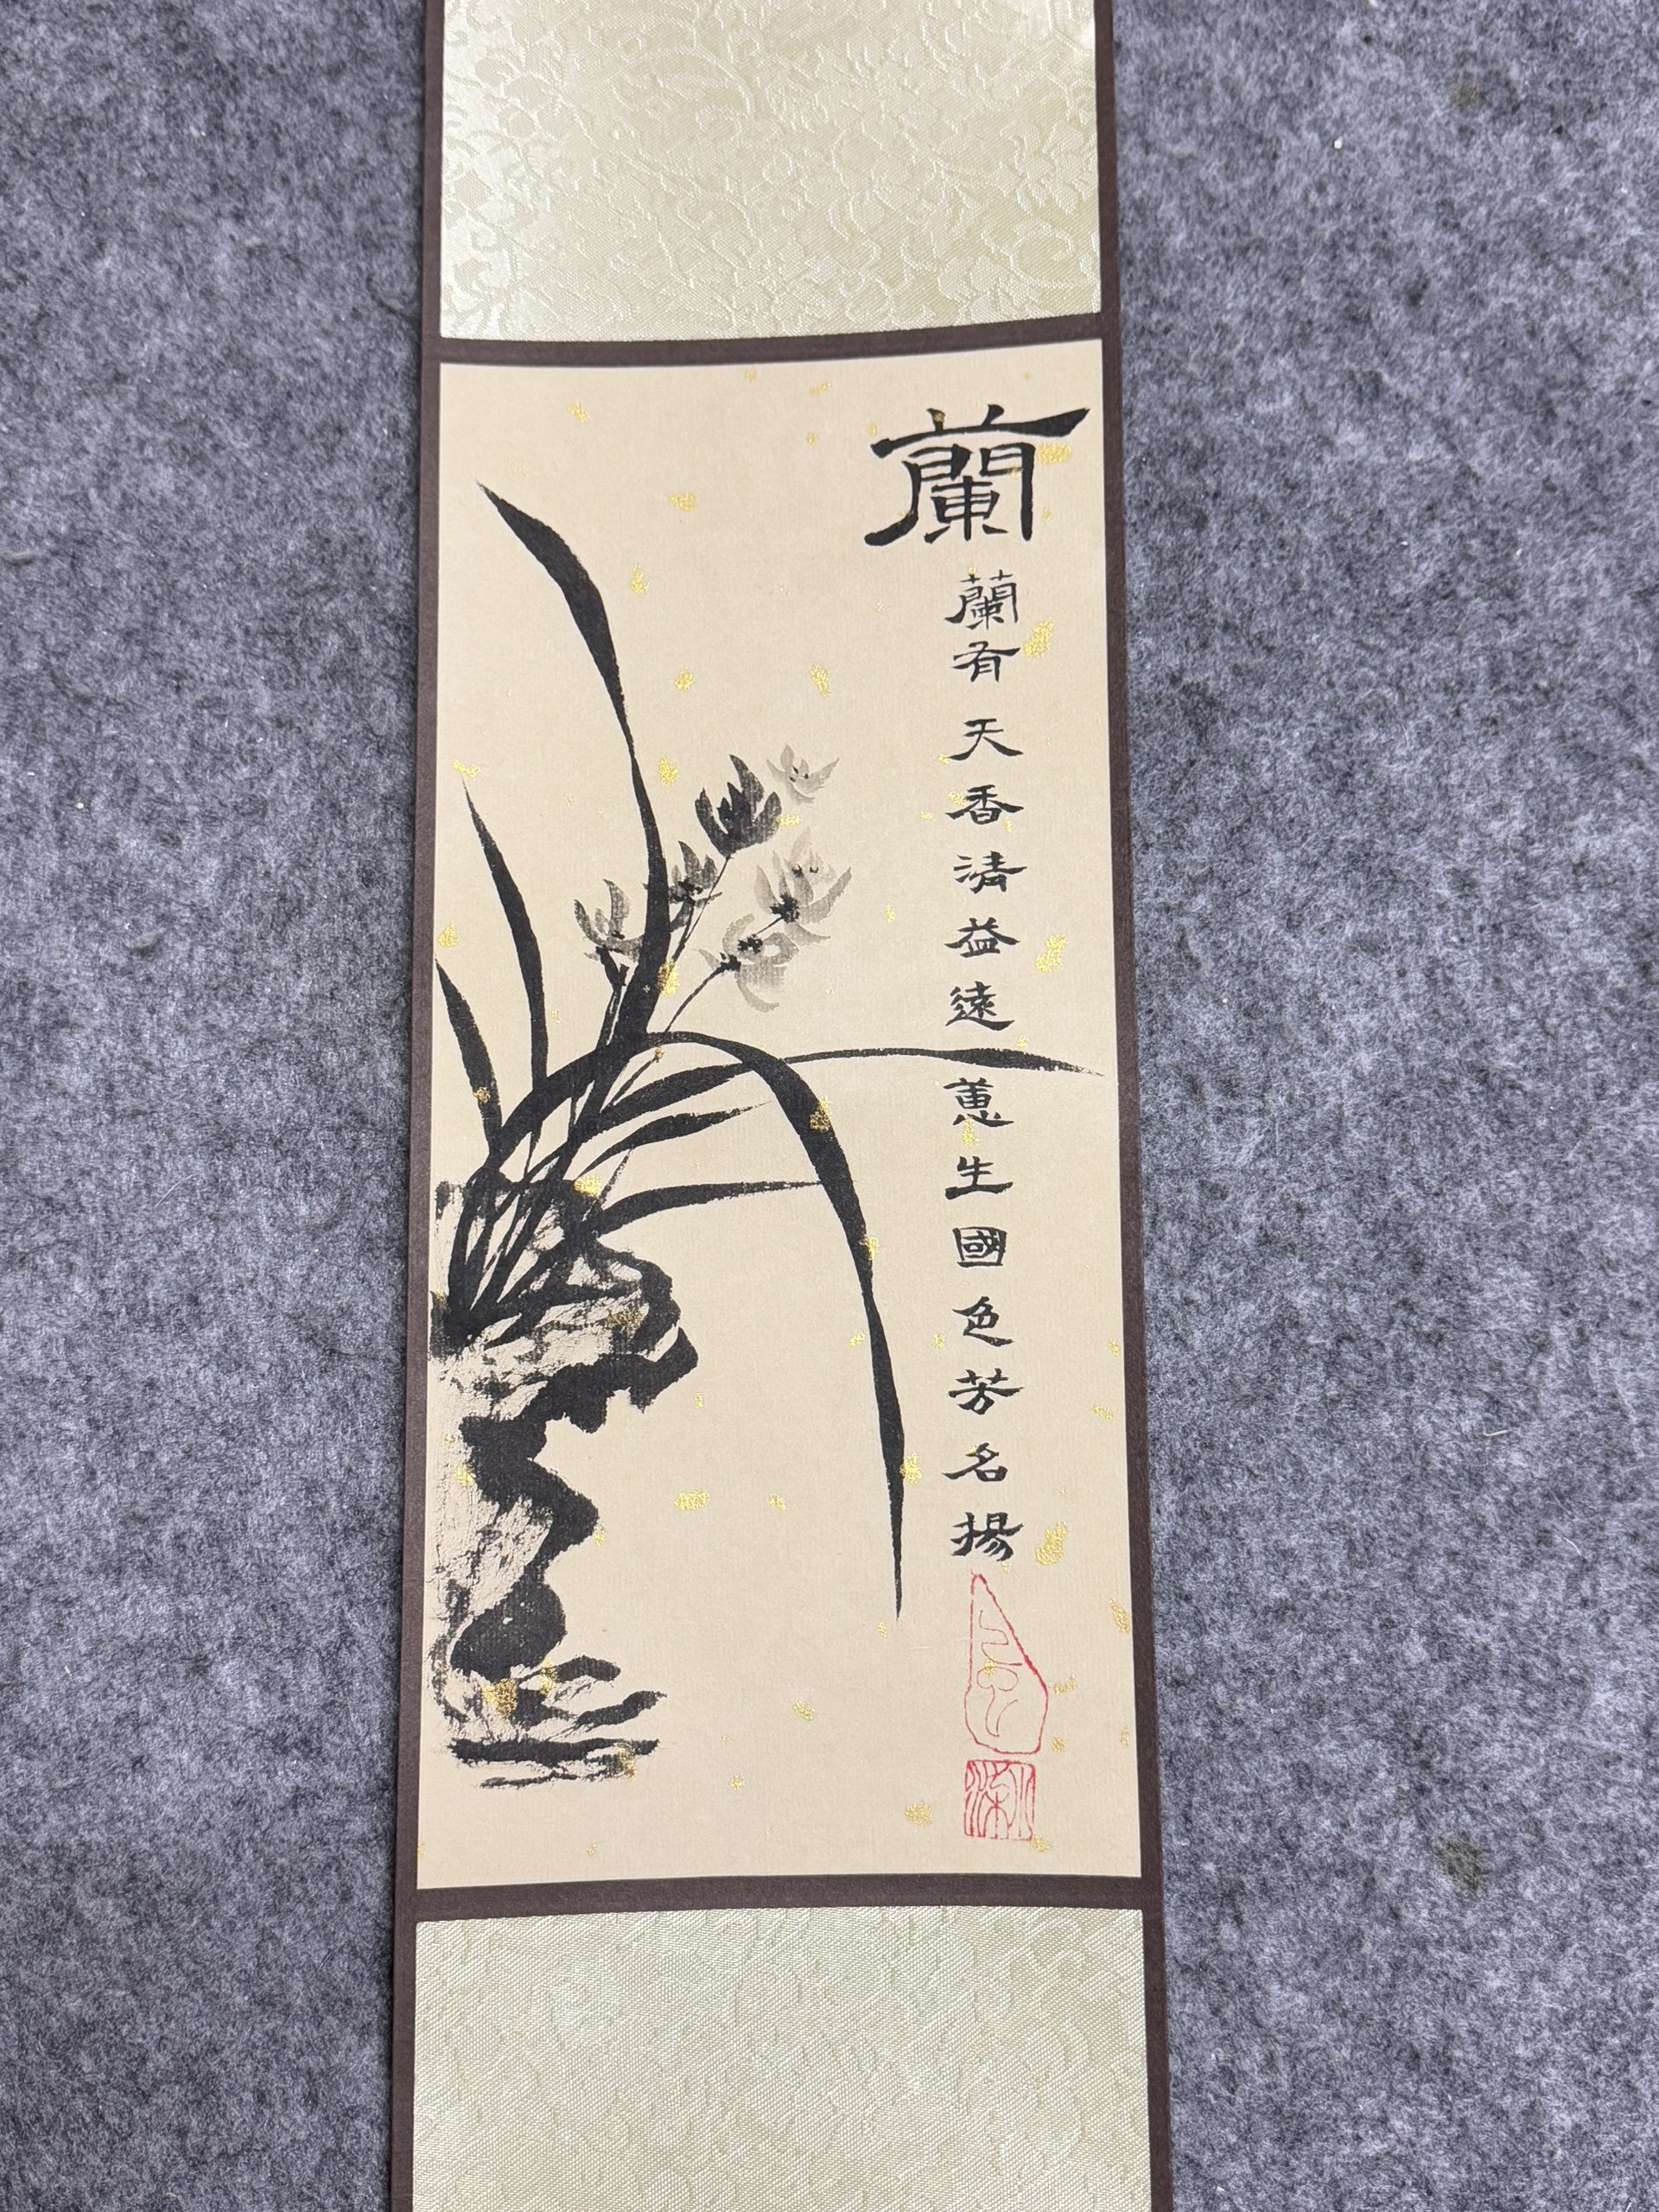 蘭
蘭有天香清益遠蕙生國色芳名揚